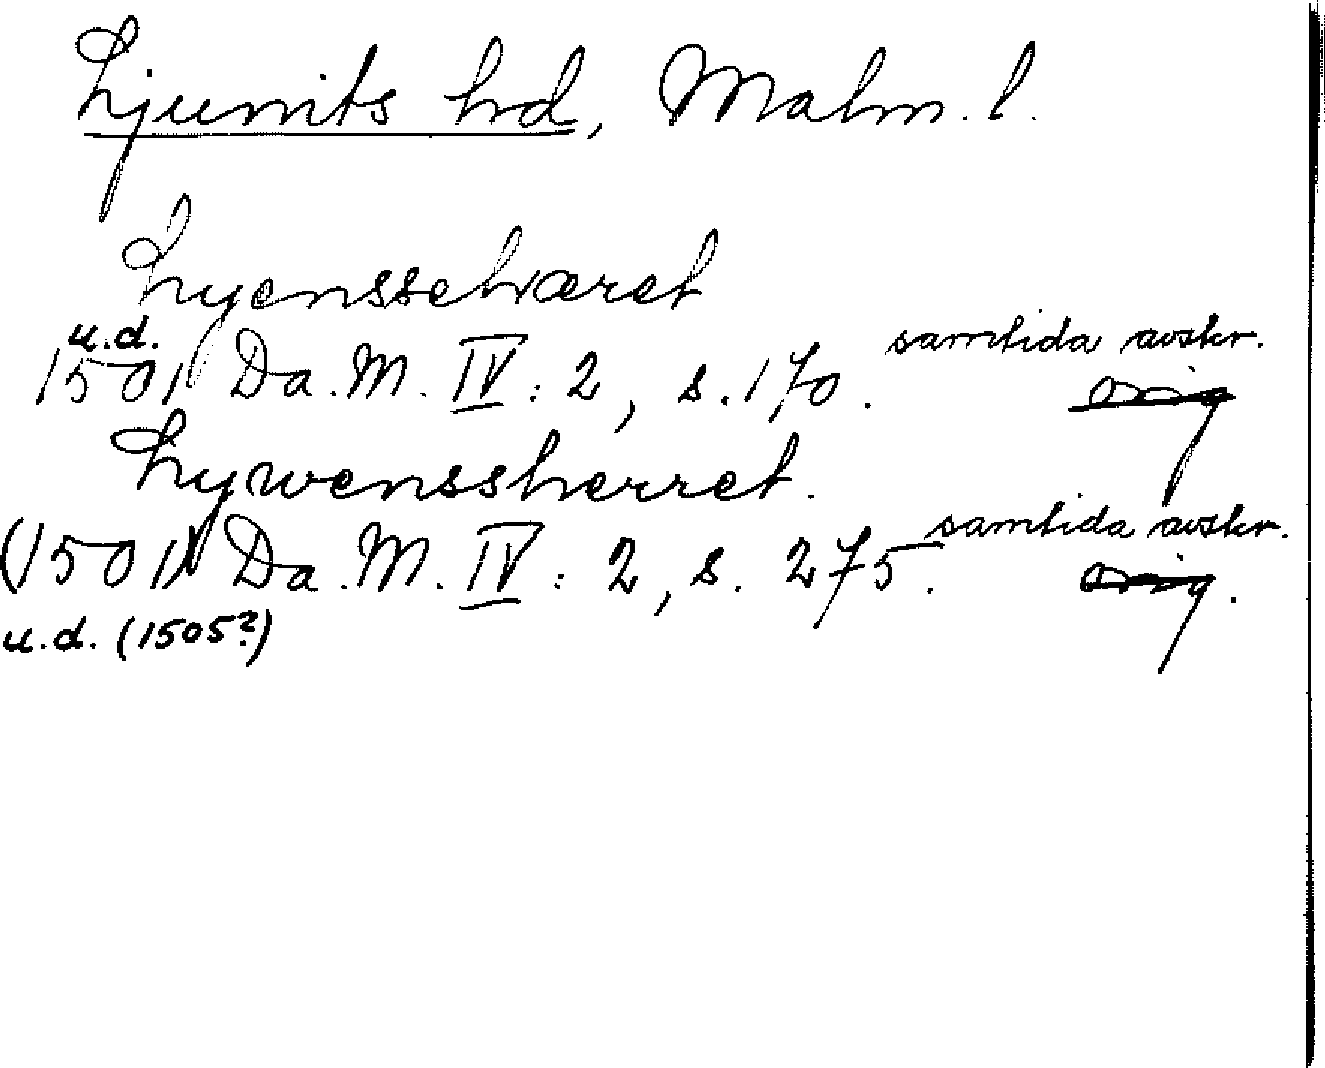 Ljunits hd, Malm. l.
Lyenssehæret
u.d.
1501 Da. M. IV: 2, s. 170. samtida avskr.
orig
Lywenssherret.
(1501) Da. M. IV: 2, s. 275. samtida avskr.
orig.
u.d. (1505?)